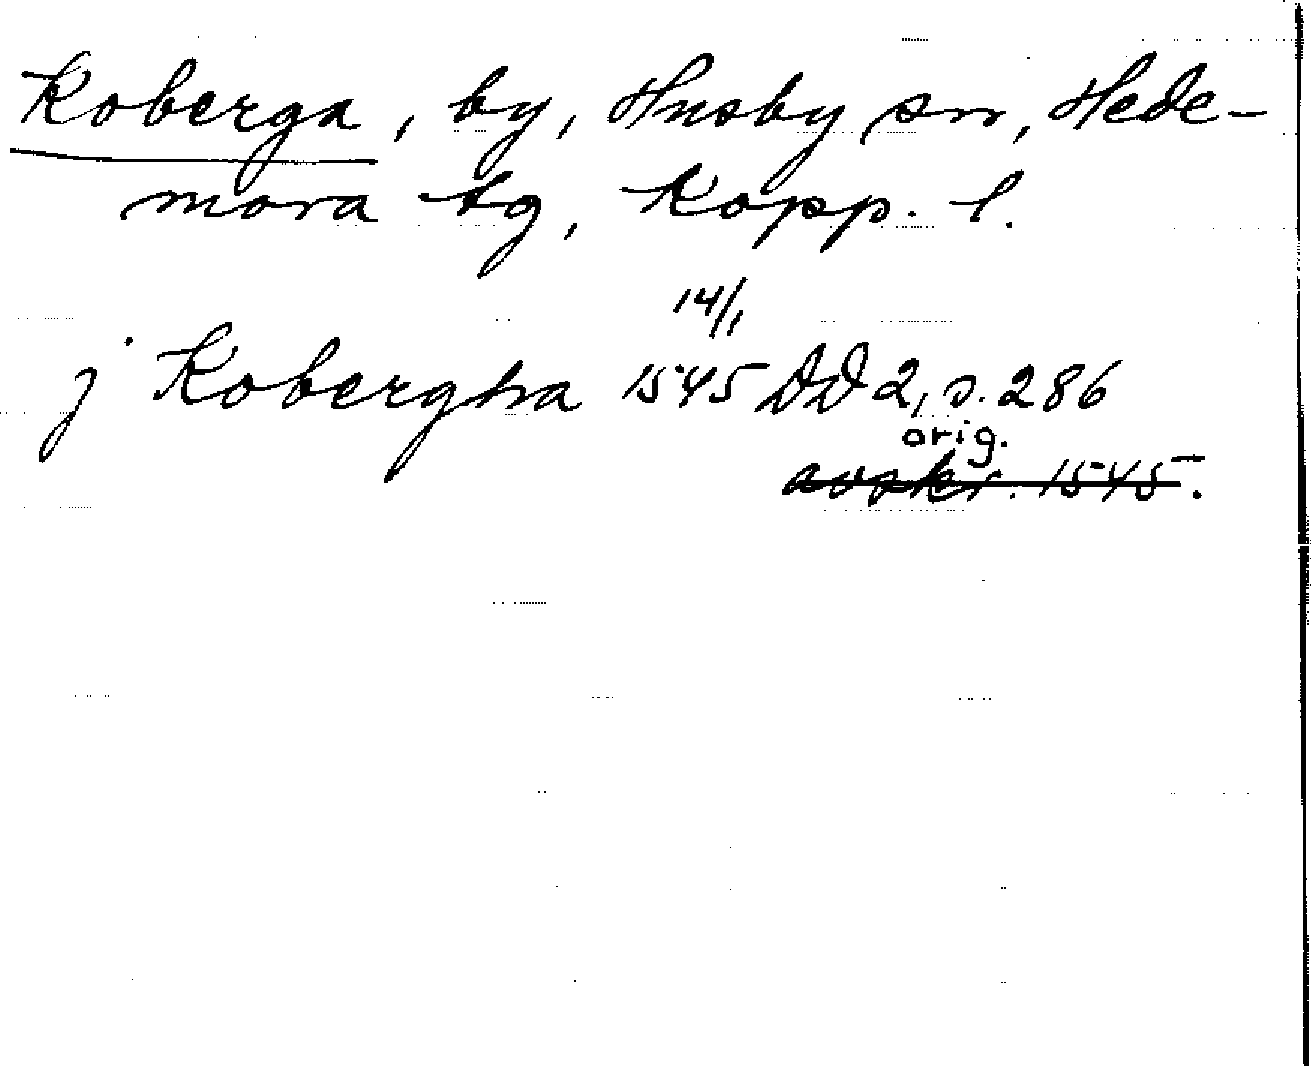 Koberga, by, Husby sn, Hede-
mora tg, Kopp. l.
14/1
j Kobergha 1545 DD 2, s. 286
orig.
avskr. 1545.